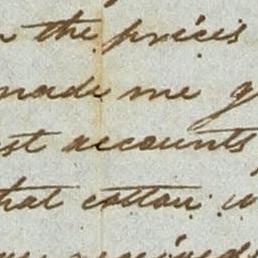 the prices
made me
accounts
that cotton